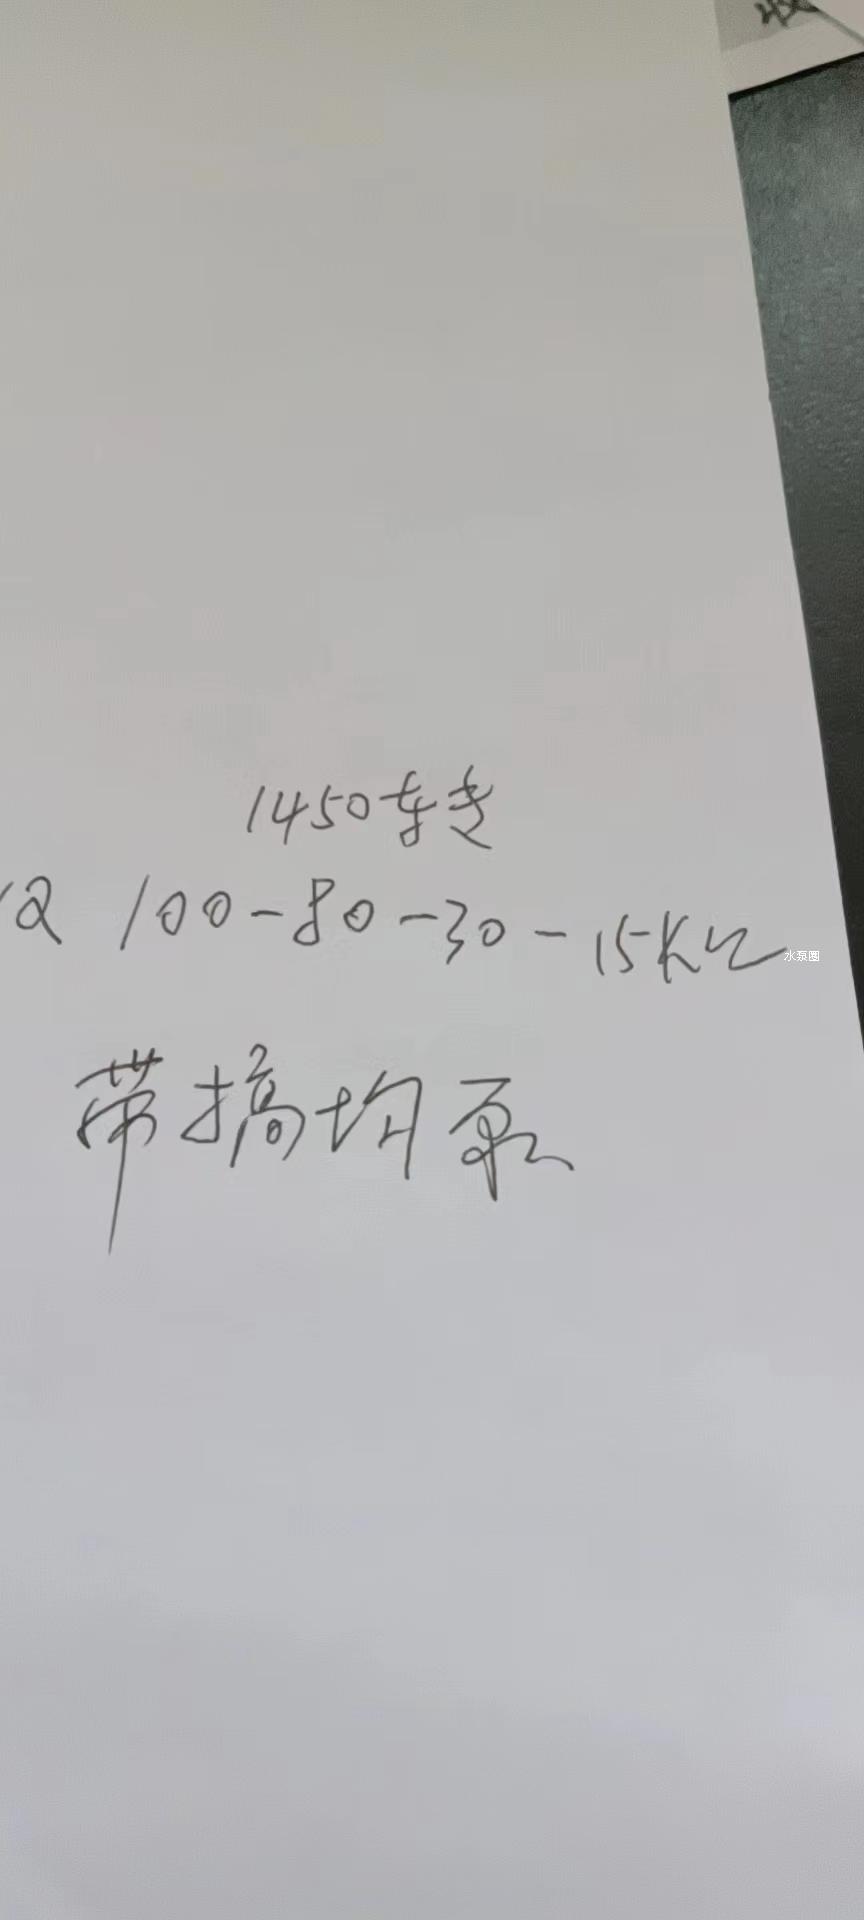 1450转
WQ 100-80-30-15KW
带搞均泵
水泵圈